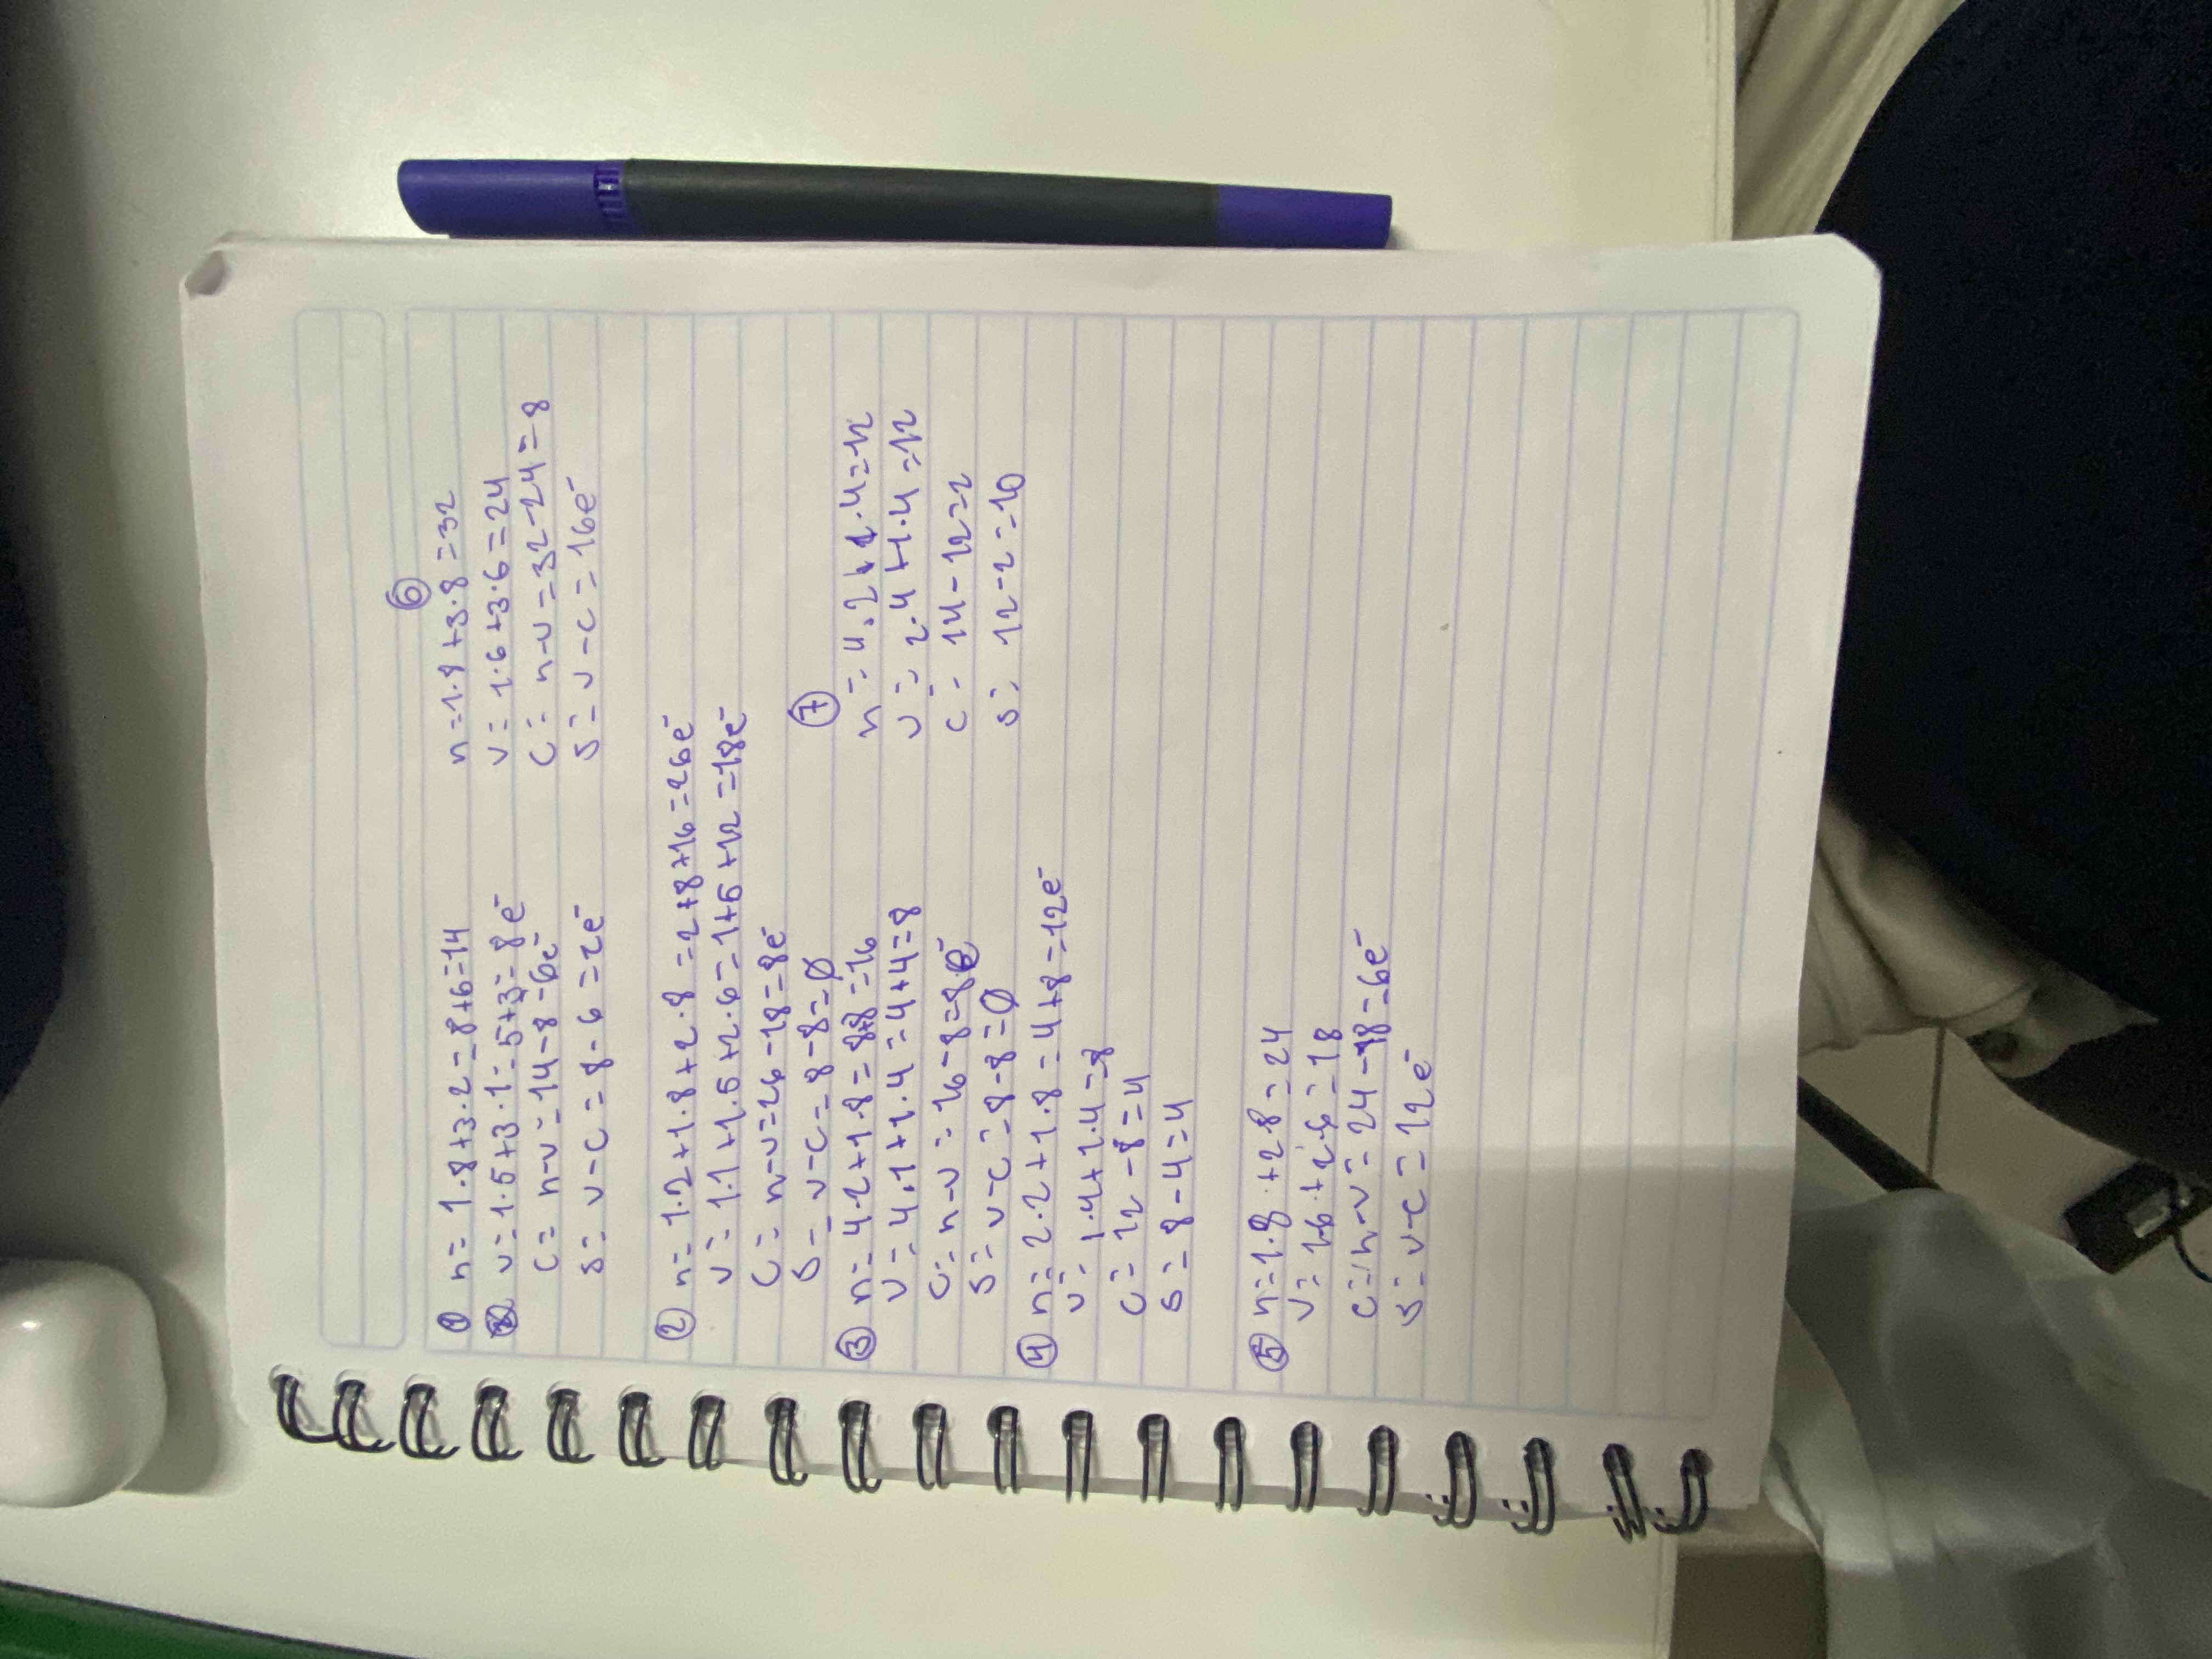 ① n = 1·8+3·2 = 8+6=14
v = 1·5+3·1 = 5+3 = 8e⁻
c = n-v = 14-8 = 6e⁻
s = v-c = 8-6 = 2e⁻
② n = 1·2+1·8+2·8 = 2+8+16=26e⁻
v = 1·1+1·5+2·6 = 1+5+12 = 18e⁻
c = n-v = 26-18 = 8e⁻
s = v-c = 8-8 = Ø
③ n = 4·2+1·8 = 8+8 = 16
v = 4·1+1·4 = 4+4 = 8
c = n-v = 16-8 = 8e⁻
s = v-c = 8-8 = Ø
④ n = 2·2+1·8 = 4+8 = 12e⁻
v = 1·4+1·4 = 8
c = 12-8 = 4
s = 8-4 = 4
⑤ n = 1·8+2·8 = 24
v = 1·6+2·6 = 18
c = n-v = 24-18 = 6e⁻
s = v-c = 12e⁻
⑥
n = 1·8+3·8 = 32
v = 1·6+3·6 = 24
c = n-v = 32-24 = 8
s = v-c = 16e⁻
⑦
n = 4·2+1·4 = 12
v = 2·4+1·4 = 12
c = 14-12 = 2
s = 12-2 = 10